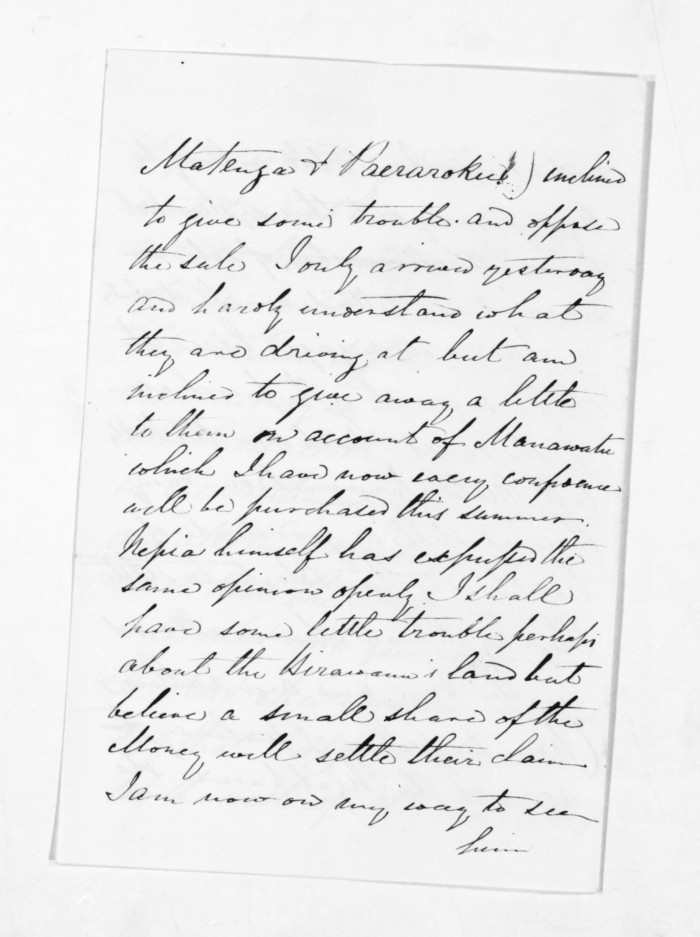 Matenga & Paerarokie) inclined
to give some trouble. and oppose
the sale I only arrived yesterday
and hardly understand what
they are driving at but am
inclined to give away a little
to them on account of Manawatu
which I have now every confidence
will be purchased this summer.
Nepia himself has expressed the
same opinion openly. I shall
have some little trouble perhaps
about the land but
believe a small share of the
Money will settle their claim
I am now on my way to see
him